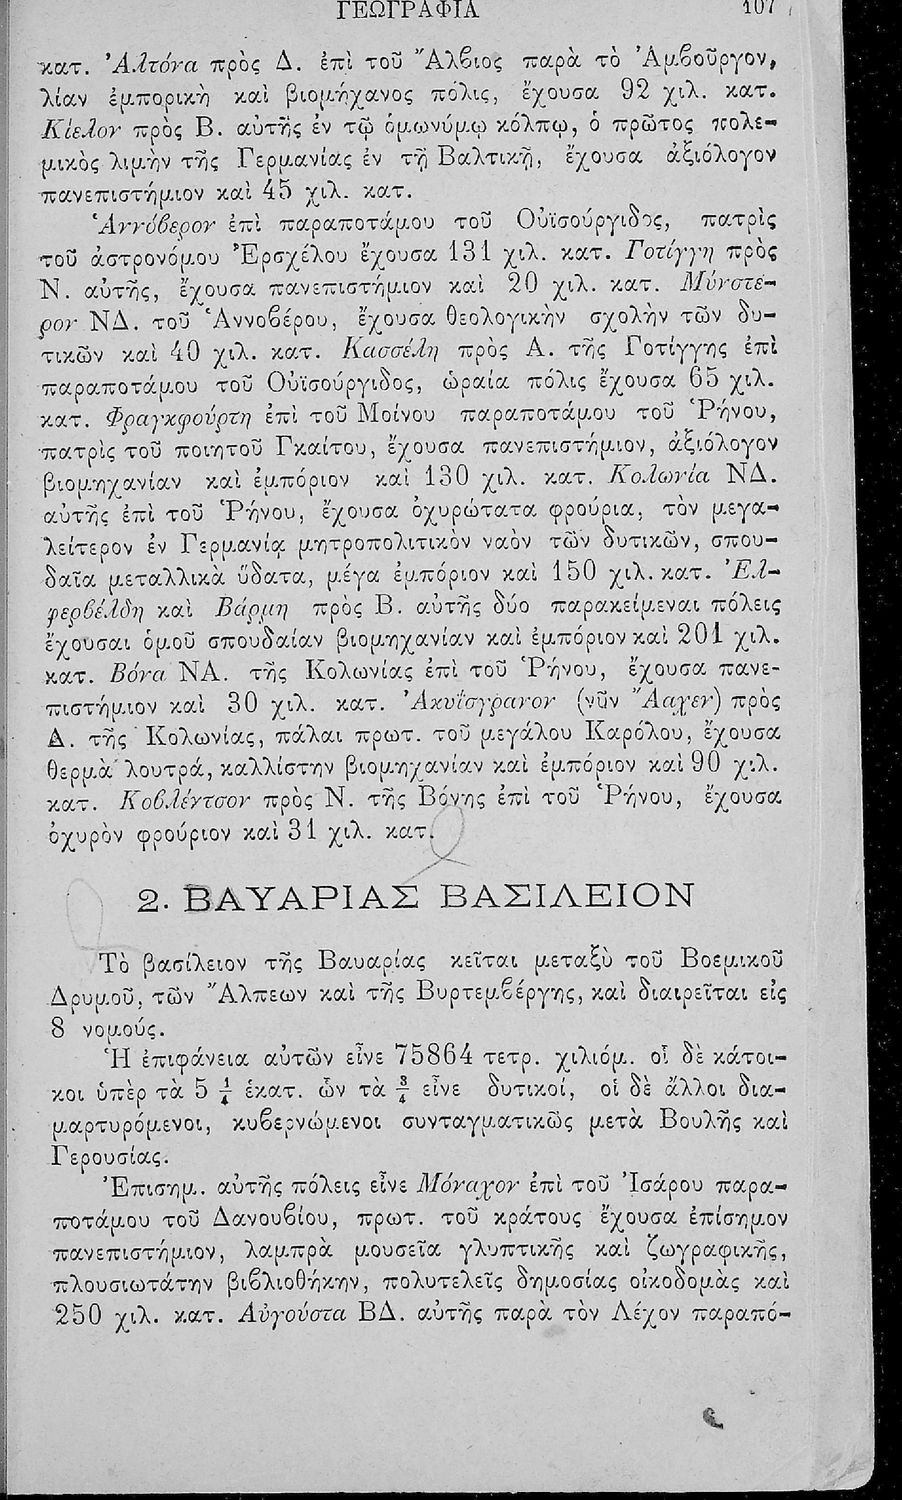 ΓΕΩΓΡΑΦΙΑ 107
κατ. Ἀλτόνα πρὸς Δ. ἐπὶ τοῦ Ἄλβιος παρὰ τὸ Ἀμβοῦργον,
λίαν ἐμπορικὴ καὶ βιομήχανος πόλις, ἔχουσα 92 χιλ. κατ.
Κίελον πρὸς Β. αὐτῆς ἐν τῷ ὁμωνύμῳ κόλπῳ, ὁ πρῶτος πολε-
μικὸς λιμὴν τῆς Γερμανίας ἐν τῇ Βαλτικῇ, ἔχουσα ἀξιόλογον
πανεπιστήμιον καὶ 45 χιλ. κατ.
Ἁννόβερον ἐπὶ παραποτάμου τοῦ Οὐϊσούργιδος, πατρὶς
τοῦ ἀστρονόμου Ἐρσχέλου ἔχουσα 131 χιλ. κατ. Γοτίγγη πρὸς
Ν. αὐτῆς, ἔχουσα πανεπιστήμιον καὶ 20 χιλ. κατ. Μύνστε-
ρον ΝΔ. τοῦ Ἁννοβέρου, ἔχουσα θεολογικὴν σχολὴν τῶν δυ-
τικῶν καὶ 40 χιλ. κατ. Κασσέλη πρὸς Α. τῆς Γοτίγγης ἐπὶ
παραποτάμου τοῦ Οὐϊσούργιδος, ὡραία πόλις ἔχουσα 65 χιλ.
κατ. Φραγκφούρτη ἐπὶ τοῦ Μοίνου παραποτάμου τοῦ Ῥήνου,
πατρὶς τοῦ ποιητοῦ Γκαίτου, ἔχουσα πανεπιστήμιον, ἀξιόλογον
βιομηχανίαν καὶ ἐμπόριον καὶ 130 χιλ. κατ. Κολωνία ΝΔ.
αὐτῆς ἐπὶ τοῦ Ῥήνου, ἔχουσα ὀχυρώτατα φρούρια, τὸν μεγα-
λείτερον ἐν Γερμανίᾳ μητροπολιτικὸν ναὸν τῶν δυτικῶν, σπου-
δαῖα μεταλλικὰ ὕδατα, μέγα ἐμπόριον καὶ 150 χιλ. κατ. Ἐλ-
φερβέλδη καὶ Βάρμη πρὸς Β. αὐτῆς δύο παρακείμεναι πόλεις
ἔχουσαι ὁμοῦ σπουδαίαν βιομηχανίαν καὶ ἐμπόριον καὶ 201 χιλ.
κατ. Βόνα ΝΑ. τῆς Κολωνίας ἐπὶ τοῦ Ῥήνου, ἔχουσα πανε-
πιστήμιον καὶ 30 χιλ. κατ. Ἀκυΐσγρανον (νῦν Ἄαχεν) πρὸς
Δ. τῆς Κολωνίας, πάλαι πρωτ. τοῦ μεγάλου Καρόλου, ἔχουσα
θερμὰ λουτρά, καλλίστην βιομηχανίαν καὶ ἐμπόριον καὶ 90 χιλ.
κατ. Κοβλέντσον πρὸς Ν. τῆς Βόνης ἐπὶ τοῦ Ῥήνου, ἔχουσα
ὀχυρὸν φρούριον καὶ 31 χιλ. κατ.
2. ΒΑΥΑΡΙΑΣ ΒΑΣΙΛΕΙΟΝ
Τὸ βασίλειον τῆς Βαυαρίας κεῖται μεταξὺ τοῦ Βοεμικοῦ
Δρυμοῦ, τῶν Ἄλπεων καὶ τῆς Βυρτεμβέργης, καὶ διαιρεῖται εἰς
8 νομούς.
Ἡ ἐπιφάνεια αὐτῶν εἶνε 75864 τετρ. χιλιόμ. οἱ δὲ κάτοι-
κοι ὑπὲρ τὰ 5 1/4 ἑκατ. ὧν τὰ 3/4 εἶνε δυτικοί, οἱ δὲ ἄλλοι δια-
μαρτυρόμενοι, κυβερνώμενοι συνταγματικῶς μετὰ Βουλῆς καὶ
Γερουσίας.
Ἐπισημ. αὐτῆς πόλεις εἶνε Μόναχον ἐπὶ τοῦ Ἰσάρου παρα-
ποτάμου τοῦ Δανουβίου, πρωτ. τοῦ κράτους ἔχουσα ἐπίσημον
πανεπιστήμιον, λαμπρὰ μουσεῖα γλυπτικῆς καὶ ζωγραφικῆς,
πλουσιωτάτην βιβλιοθήκην, πολυτελεῖς δημοσίας οἰκοδομὰς καὶ
250 χιλ. κατ. Αὐγούστα ΒΔ. αὐτῆς παρὰ τὸν Λέχον παραπό-